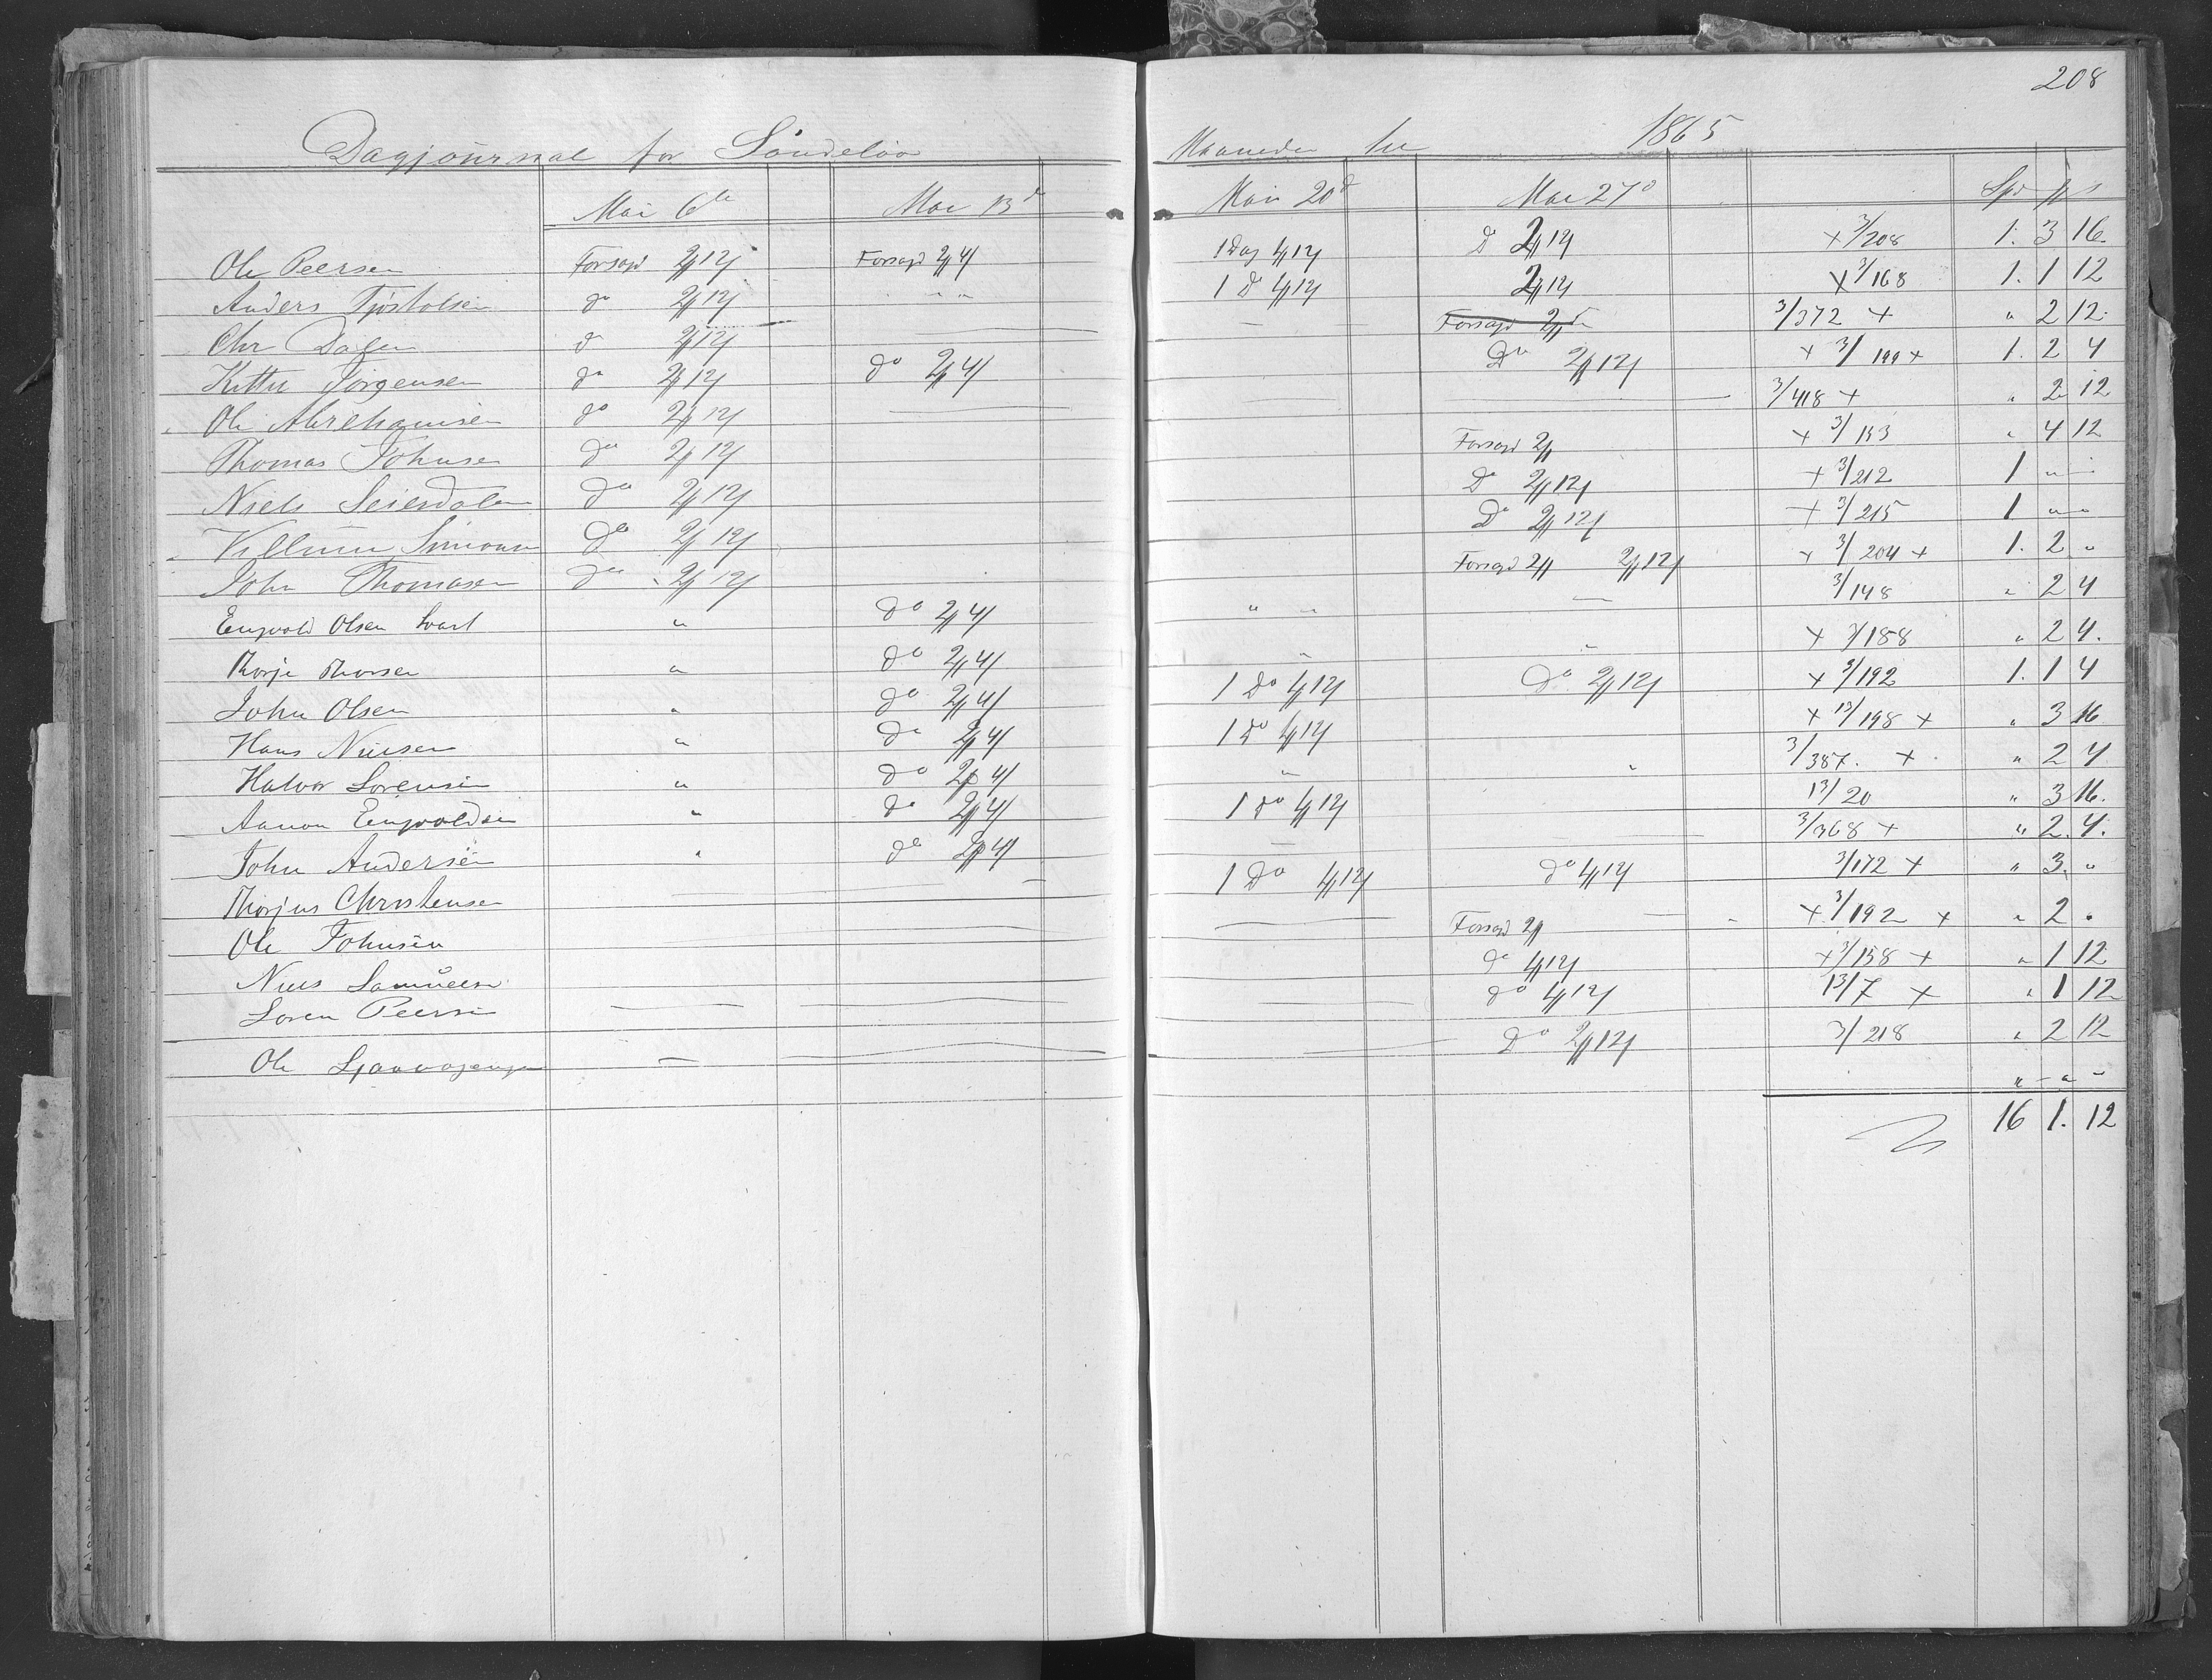 208
Dagjournal for Søndeløv Maaneden 1865
Mai 6te Mai 13de Mai 20d Mai 27d Spd
Ole Peersen Forsagd 2 12 Forsagd 2 4 1 Dag 4 12 Do 2 12 x 3/208 1. 3 16.
Anders Tjøstolsen do 2 12 " " 1 Do 4 12 2 12 x 3/168 1. 1 12
Chr Dalen do 2 12 — — 3/372 x " 2 12.
Kittil Jørgensen do 2 12 do 2 4 Do 2 12 x 3/199 x 1. 2 4
Ole Abrehamsen do 2 12 — — — 3/418 x " 2 12
Thomas Johnsen do 2 12 Forsagd 2 x 3/153 " 4 12
Niels Seiersdalen do 2 12 Do 2 12 x 3/212 1 " "
Villum Simonsen do 2 12 Do 2 12 x 3/215 1 " "
John Thomasen do 2 12 Forsagd 2 2 12 x 3/204 x 1. 2 "
Engvold Olsen Svart " do 2 4 " " — 3/148 " 2 4
Thorje Thorsen " do 2 4 " " x 3/188 " 2 4.
John Olsen " do 2 4 1 Do 4 12 Do 2 12 x 3/192 1. 1 4
Hans Nielsen " do 2 4 1 Do 4 12 x 13/198 x " 3 16
Halvor Sørensen " do 2 4 " " 3/387. x " 2 4
Aanon Engvoldsen " do 2 4 1 do 4 12 13/20 " 3 16.
John Andersen " do 2 4 — — 3/368 x " 2. 4.
Thorjus Christensen — — 1 Do 4 12 do 4 12 3/172 x " 3. "
Ole Johnsen — Forsagd 2 — x 3/192 x " 2 .
Niels Samuelsen do 4 12 x 3/158 x " 1 12
Søren Peersen — — — do 4 12 13/7 x " 1 12
Ole — — — Do 2 12 3/218 " 2 12
" " "
16 1. 12